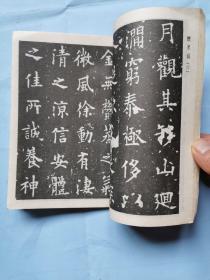 月觀其移山迴
澗窮泰極侈以
金無鬱蒸之氣
微風徐動有淒
清之涼信安體
之佳所誠養神